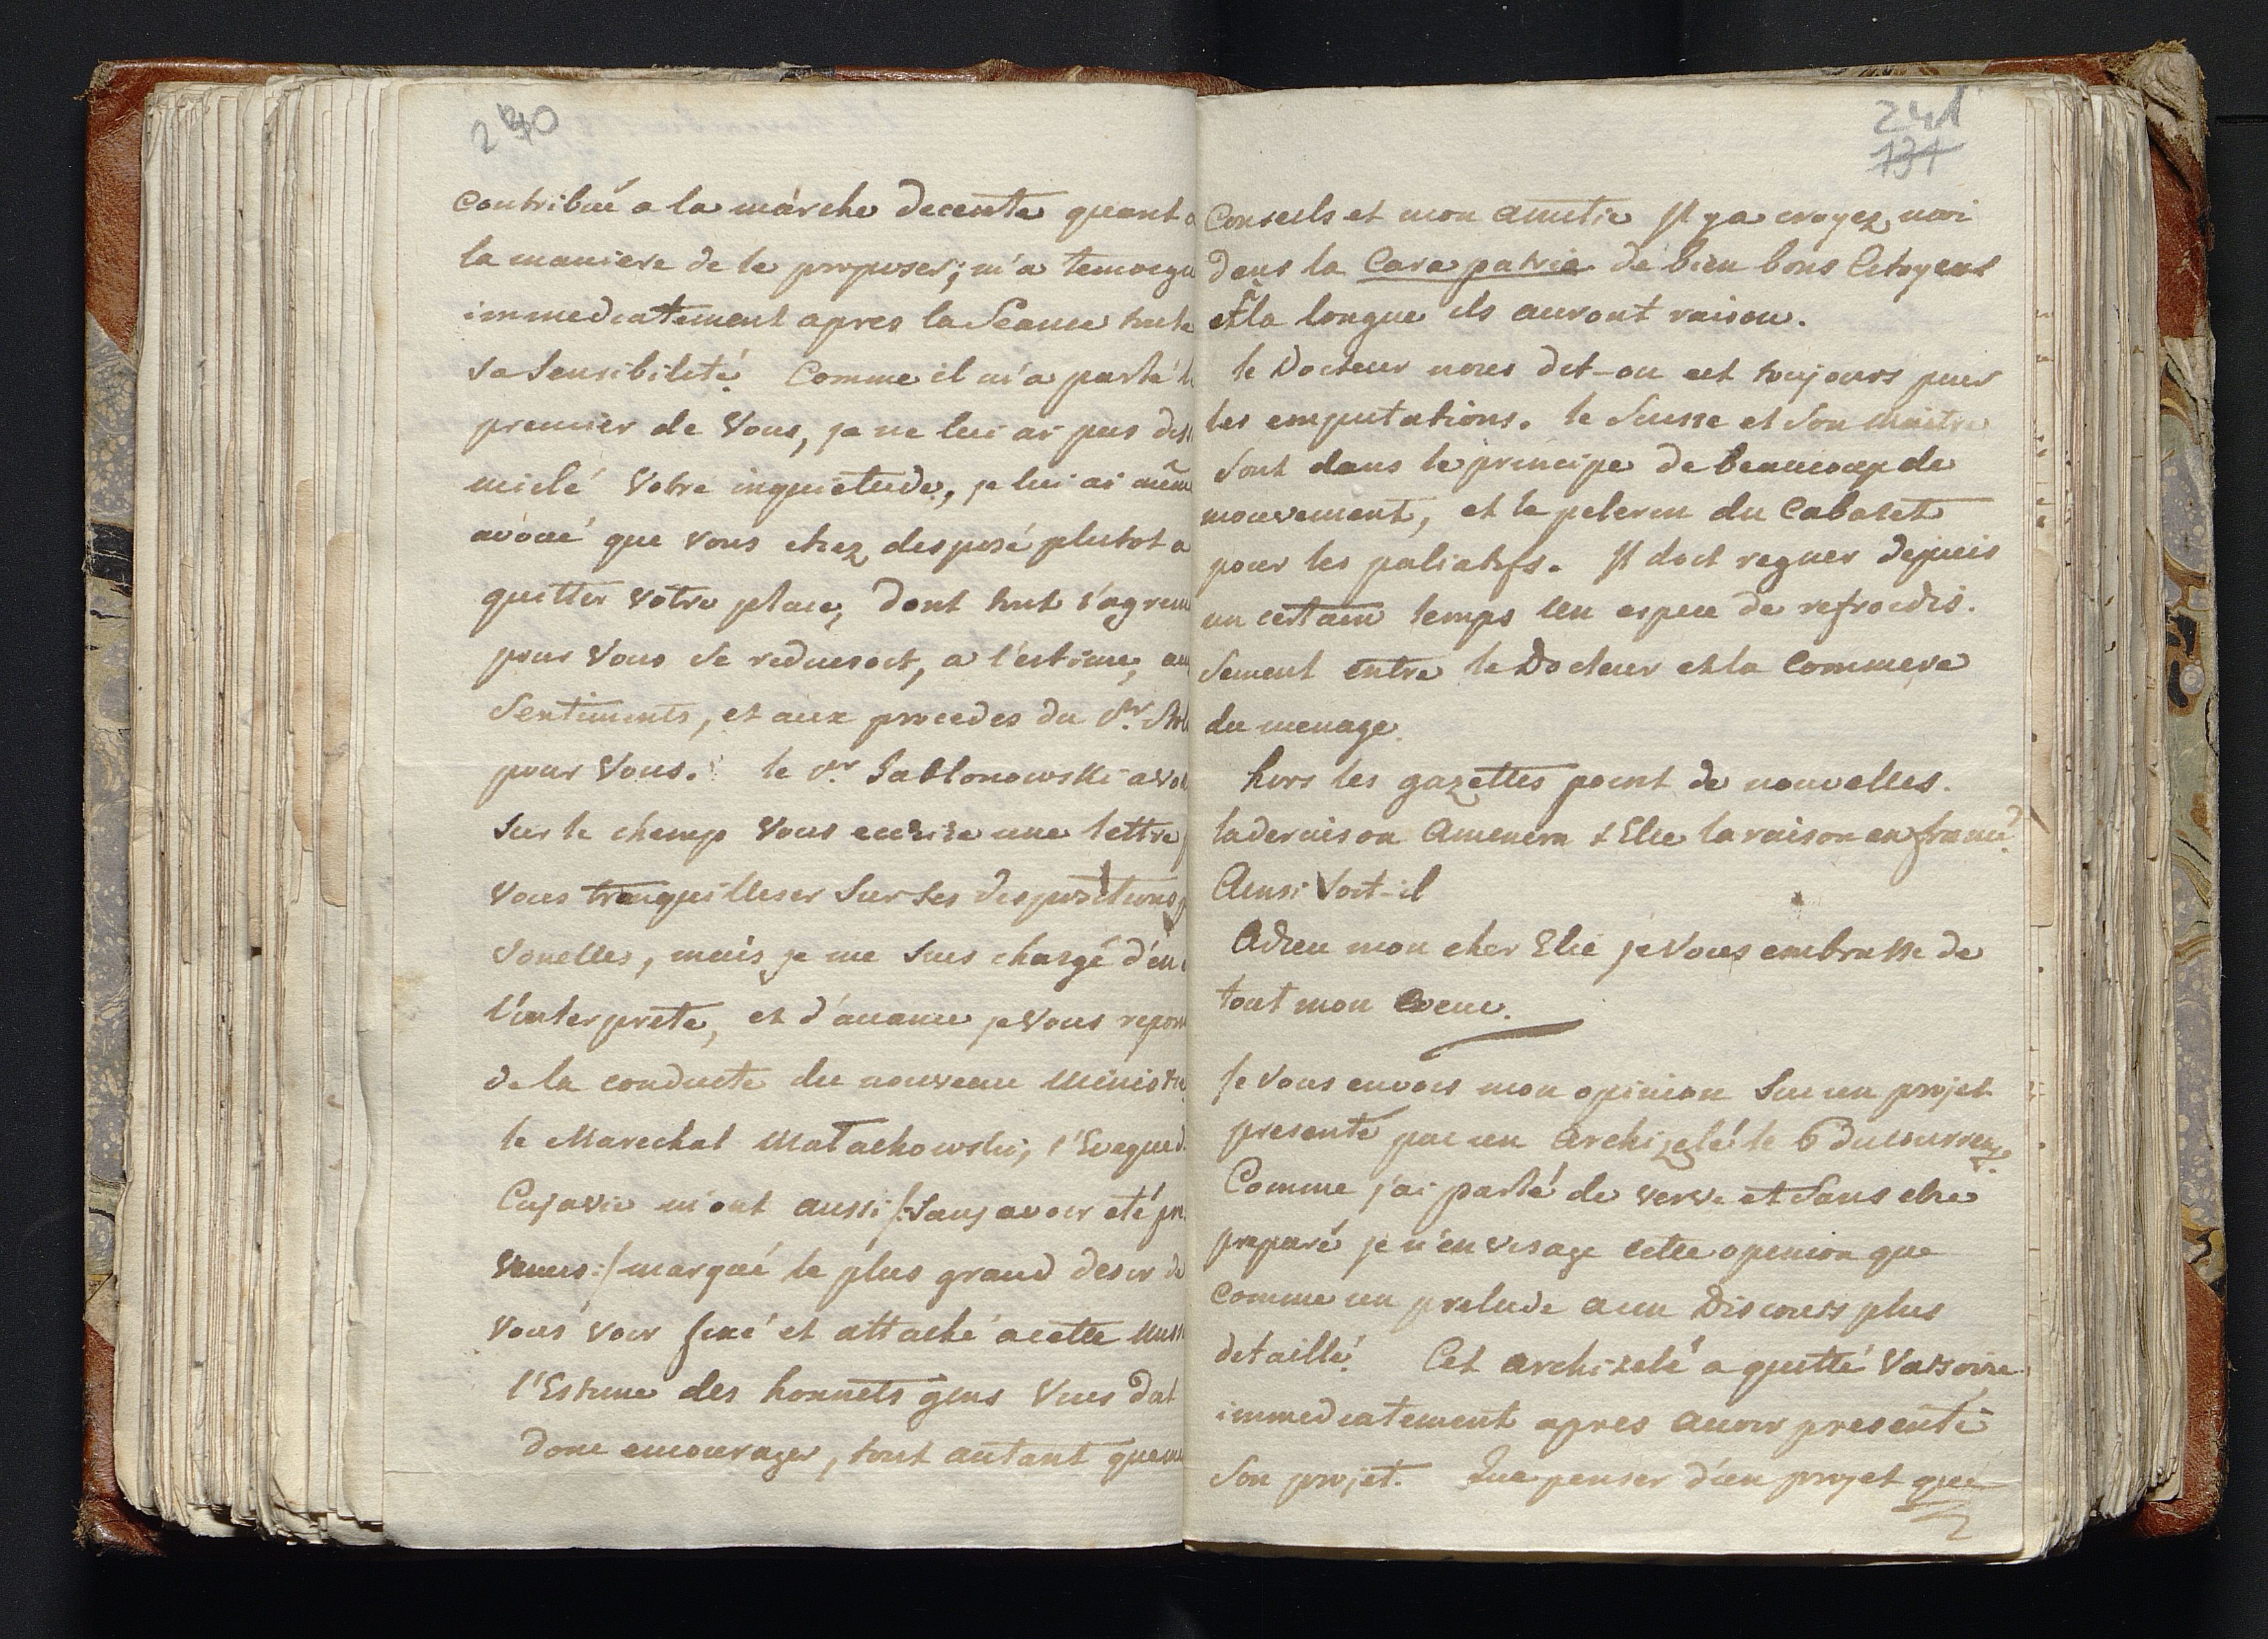 240
contribué a la màrche decente quant a
la maniere de le proposer; m'a temoign
immediatement apres la Seance toute
sa Sensibilité. Comme il m'a parlé le
premier de Vous, je ne lui ai pas diss
mielé Votre inquietude, je lui ai même
avoué que vous etiez disposé plutot a
quitter votre place, dont tout l'agrem
pour Vous se reduisoit, a l'estime, au
Sentiments, et aux procedes du Sr.
pour Vous. le Sr Jablonowski a vou
sur le chemp Vous ecrire une lettre
Vous tranquilliser Sur ses dispositions
sonelles, mais je me suis chargé d'en
l'interprete, et d'avance je Vous repon
de la conduite du nouveau Ministre
le Marechal Małachowski, l'Eveque d
Cujavie m'ont aussi /: Sans avoir eté pre
venus :/ marqué le plus grand desir de
Vous voir fixé et attaché a cette Miss
l'Estime des honnets gens Vous doit
donc encourager, tout autant que me
241
131
Conseils et mon amitie Il y a croyez moi
dans la Cara patria de bien bons Citoyens
et a la longue ils auront raison.
le Docteur nous dit-on est toujours pour
les emputations. le Suisse et son Maitre
sont dans le principe de beaucoup de
mouvement, et le pelerin du Cabaret
pour les paliatifs. Il doit regner depuis
un certain temps un espece de refroidis.
sement entre le Docteur et la Commere
du menage.
hors les gazettes point de nouvelles.
la deraison Amenera t Elle la raison en france?
Ainsi Soit-il
Adieu mon cher Elie je Vous embrasse de
tout mon Coeur.
Je Vous envois mon opinion Sur un projet
presenté par un Archizelé le 6 du courrent.
Comme j'ai parlé de verve et Sans etre
preparé je n'envisage cette opinion que
comme un prelude a un Discours plus
detaillé. Cet archizelé a quitté Varsovie
immediatement apres avoir presenté
Son projet. Que penser d'un projet que